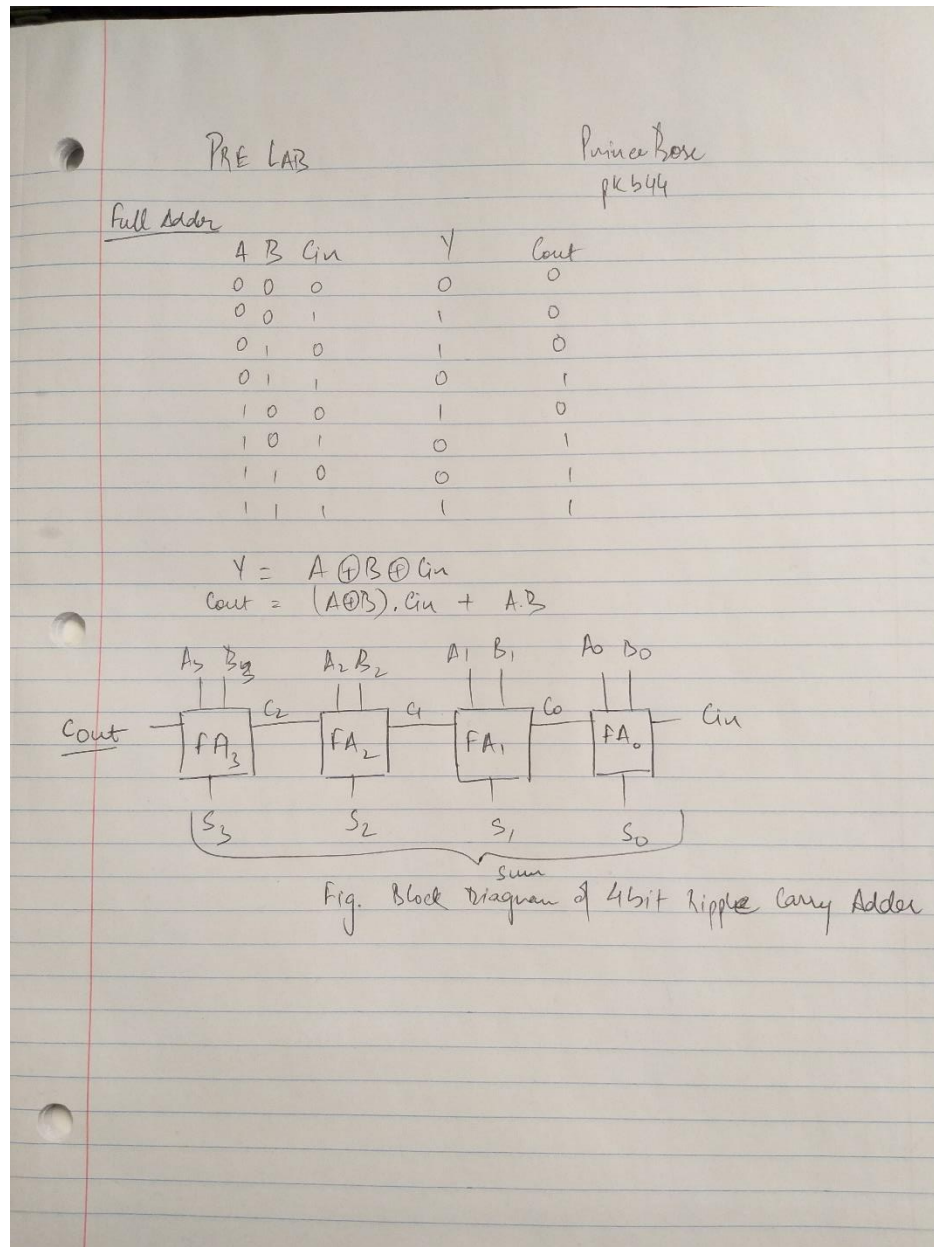 PRE LAB Prince Bose
pkb44
Full Adder
A B Cin Y Cout
0 0 0 0 0
0 0 1 1 0
0 1 0 1 0
0 1 1 0 1
1 0 0 1 0
1 0 1 0 1
1 1 0 0 1
1 1 1 1 1
Y = A ⊕ B ⊕ Cin
Cout = (A⊕B).Cin + A.B
A3 B3 A2 B2 A1 B1 A0 B0
Cout FA3 C2 FA2 C1 FA1 C0 FA0 Cin
S3 S2 S1 S0
Sum
Fig. Block Diagram of 4bit Ripple Carry Adder